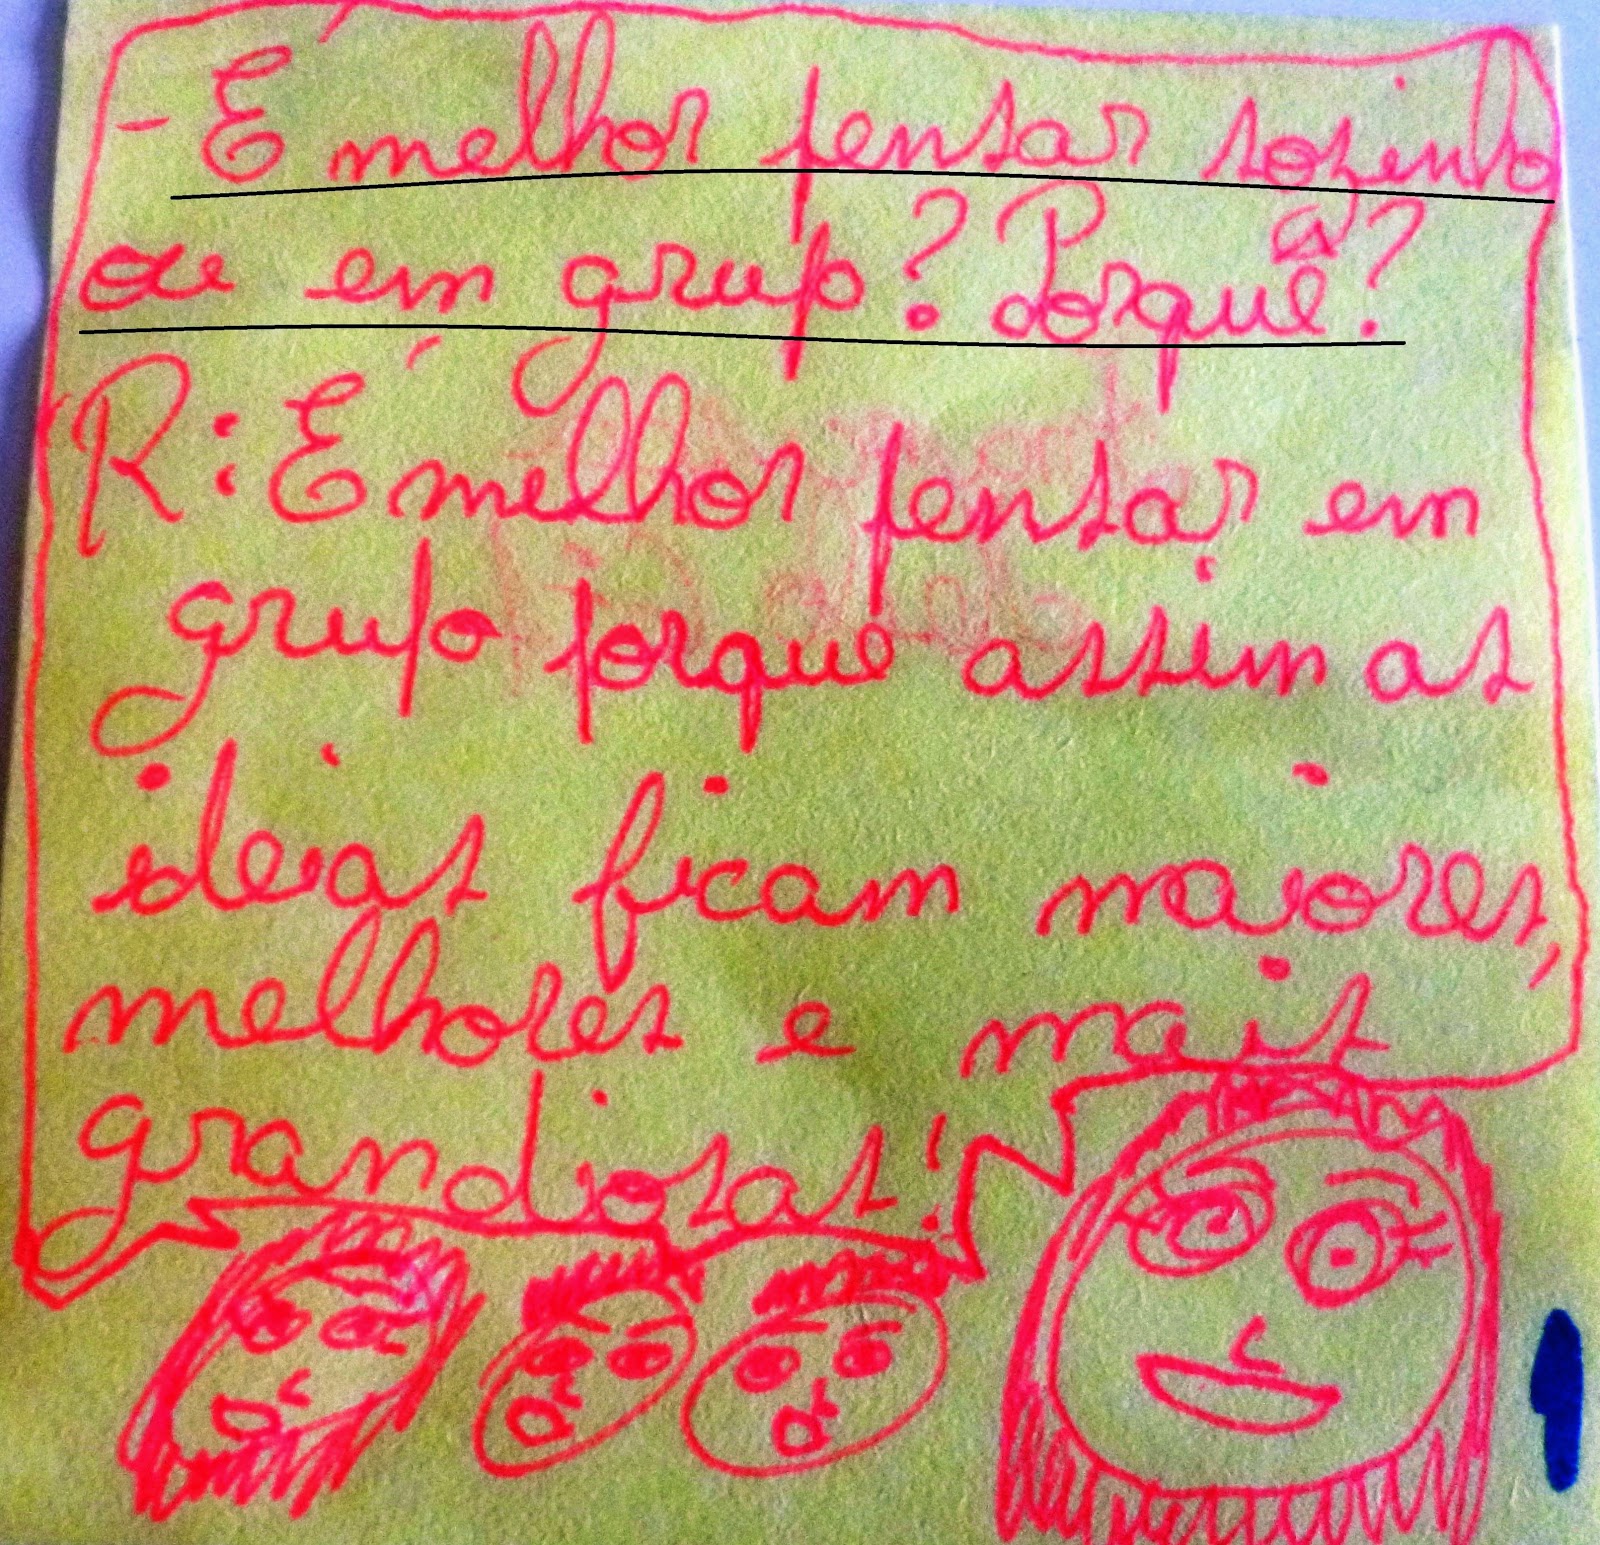 - É melhor pensar sozinho
ou em grupo? Porquê?
R: É melhor pensar em
grupo porque assim as
ideias ficam maiores,
melhores e mais
grandiosas!